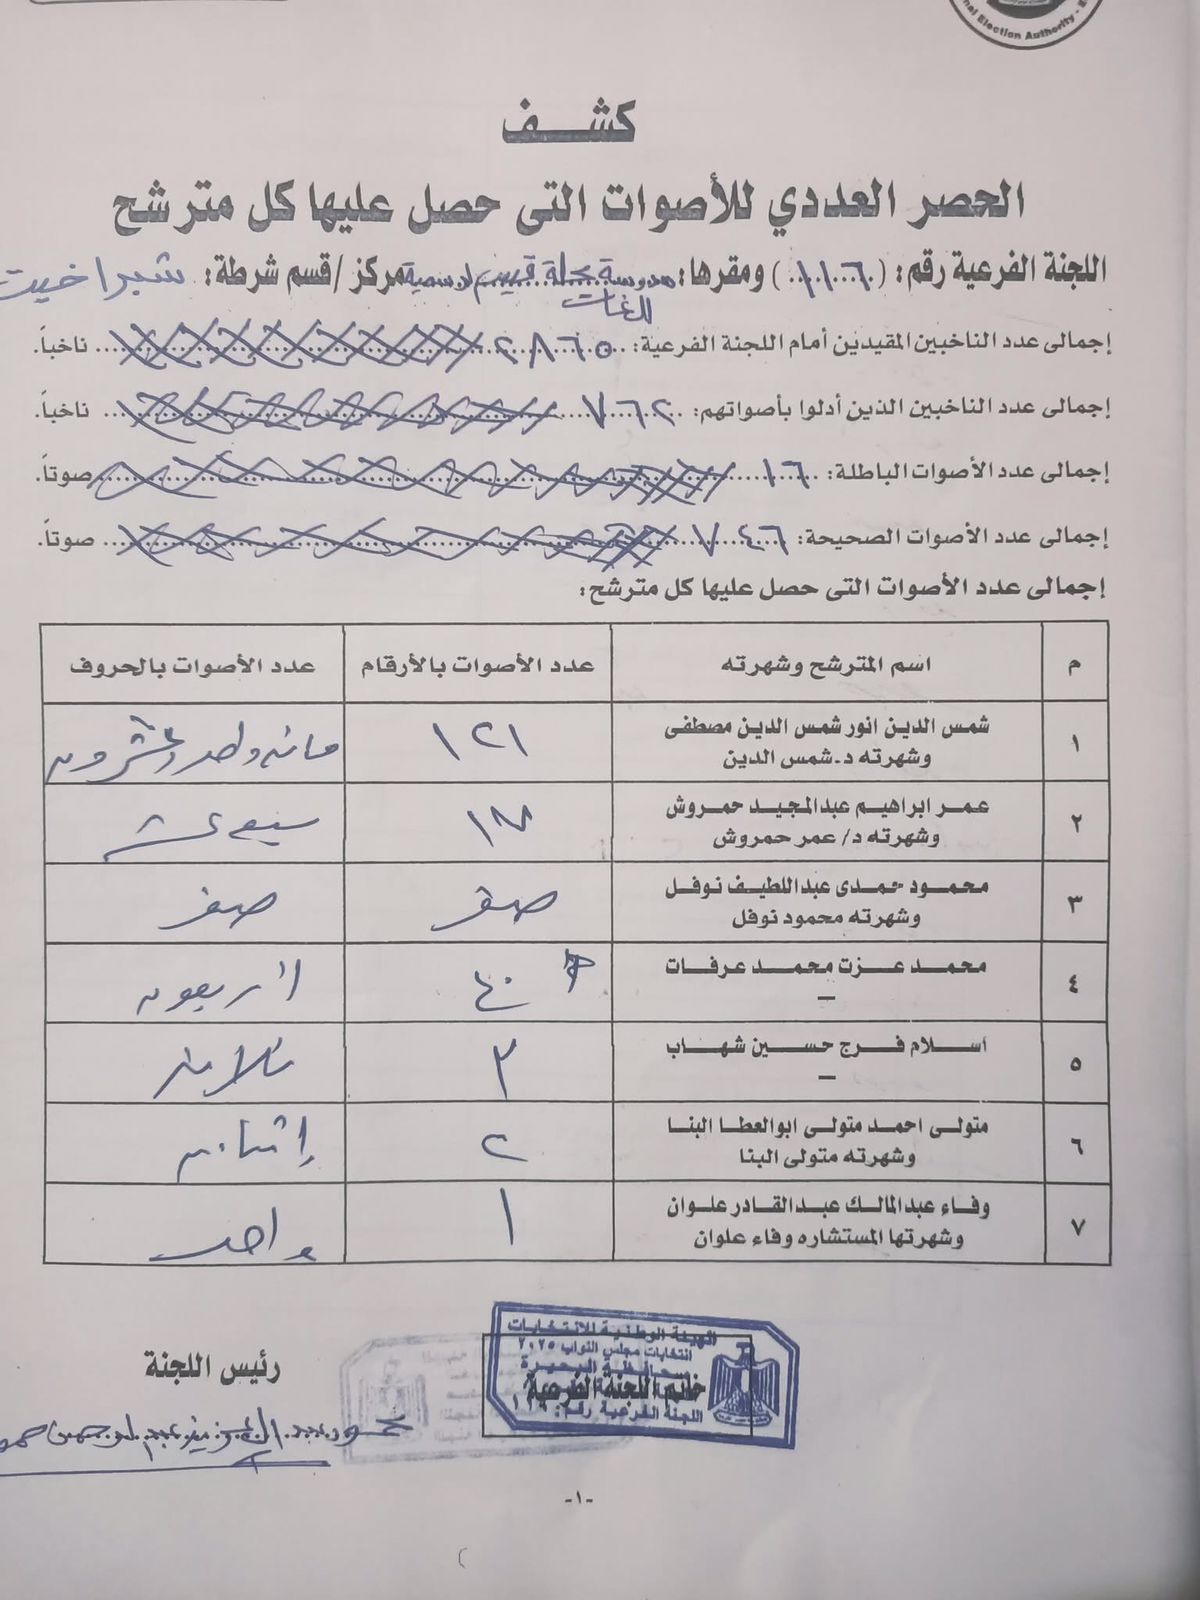 nal Election Authority - E
كشف
الحصر العددي للأصوات التى حصل عليها كل مترشح
اللجنة الفرعية رقم: (١١٦) ومقرها: مدرسة محلة قيس الرسمية مركز/قسم شرطة: شبراخيت
للغات
إجمالى عدد الناخبين المقيدين أمام اللجنة الفرعية: ٢٨٦٥ ناخباً.
إجمالى عدد الناخبين الذين أدلوا بأصواتهم: ٧٦٢ ناخباً.
إجمالى عدد الأصوات الباطلة: ١٦ صوتاً.
إجمالى عدد الأصوات الصحيحة: ٧٤٦ صوتاً.
إجمالى عدد الأصوات التى حصل عليها كل مترشح:
م اسم المترشح وشهرته عدد الأصوات بالأرقام عدد الأصوات بالحروف
١ شمس الدين انور شمس الدين مصطفى ١٢١ مائه واحد وعشرون
وشهرته د.شمس الدين
٢ عمر ابراهيم عبدالمجيد حمروش ١٧ سبع عشر
وشهرته د/ عمر حمروش
٣ محمود حمدى عبداللطيف نوفل صفر صفر
وشهرته محمود نوفل
٤ محمد عزت محمد عرفات ٤٠ اربعون
–
٥ اسلام فرج حسين شهاب ٣ ثلاثة
–
٦ متولى احمد متولى ابوالعطا البنا ٢ إثنان
وشهرته متولى البنا
٧ وفاء عبدالمالك عبدالقادر علوان ١ واحد
وشهرتها المستشاره وفاء علوان
الهيئة الوطنية للانتخابات
انتخابات مجلس النواب ٢٠٢٥
محافظة البحيرة
خاتم اللجنة الفرعية
اللجنة الفرعية رقم: ١١٦
رئيس اللجنة
-١-